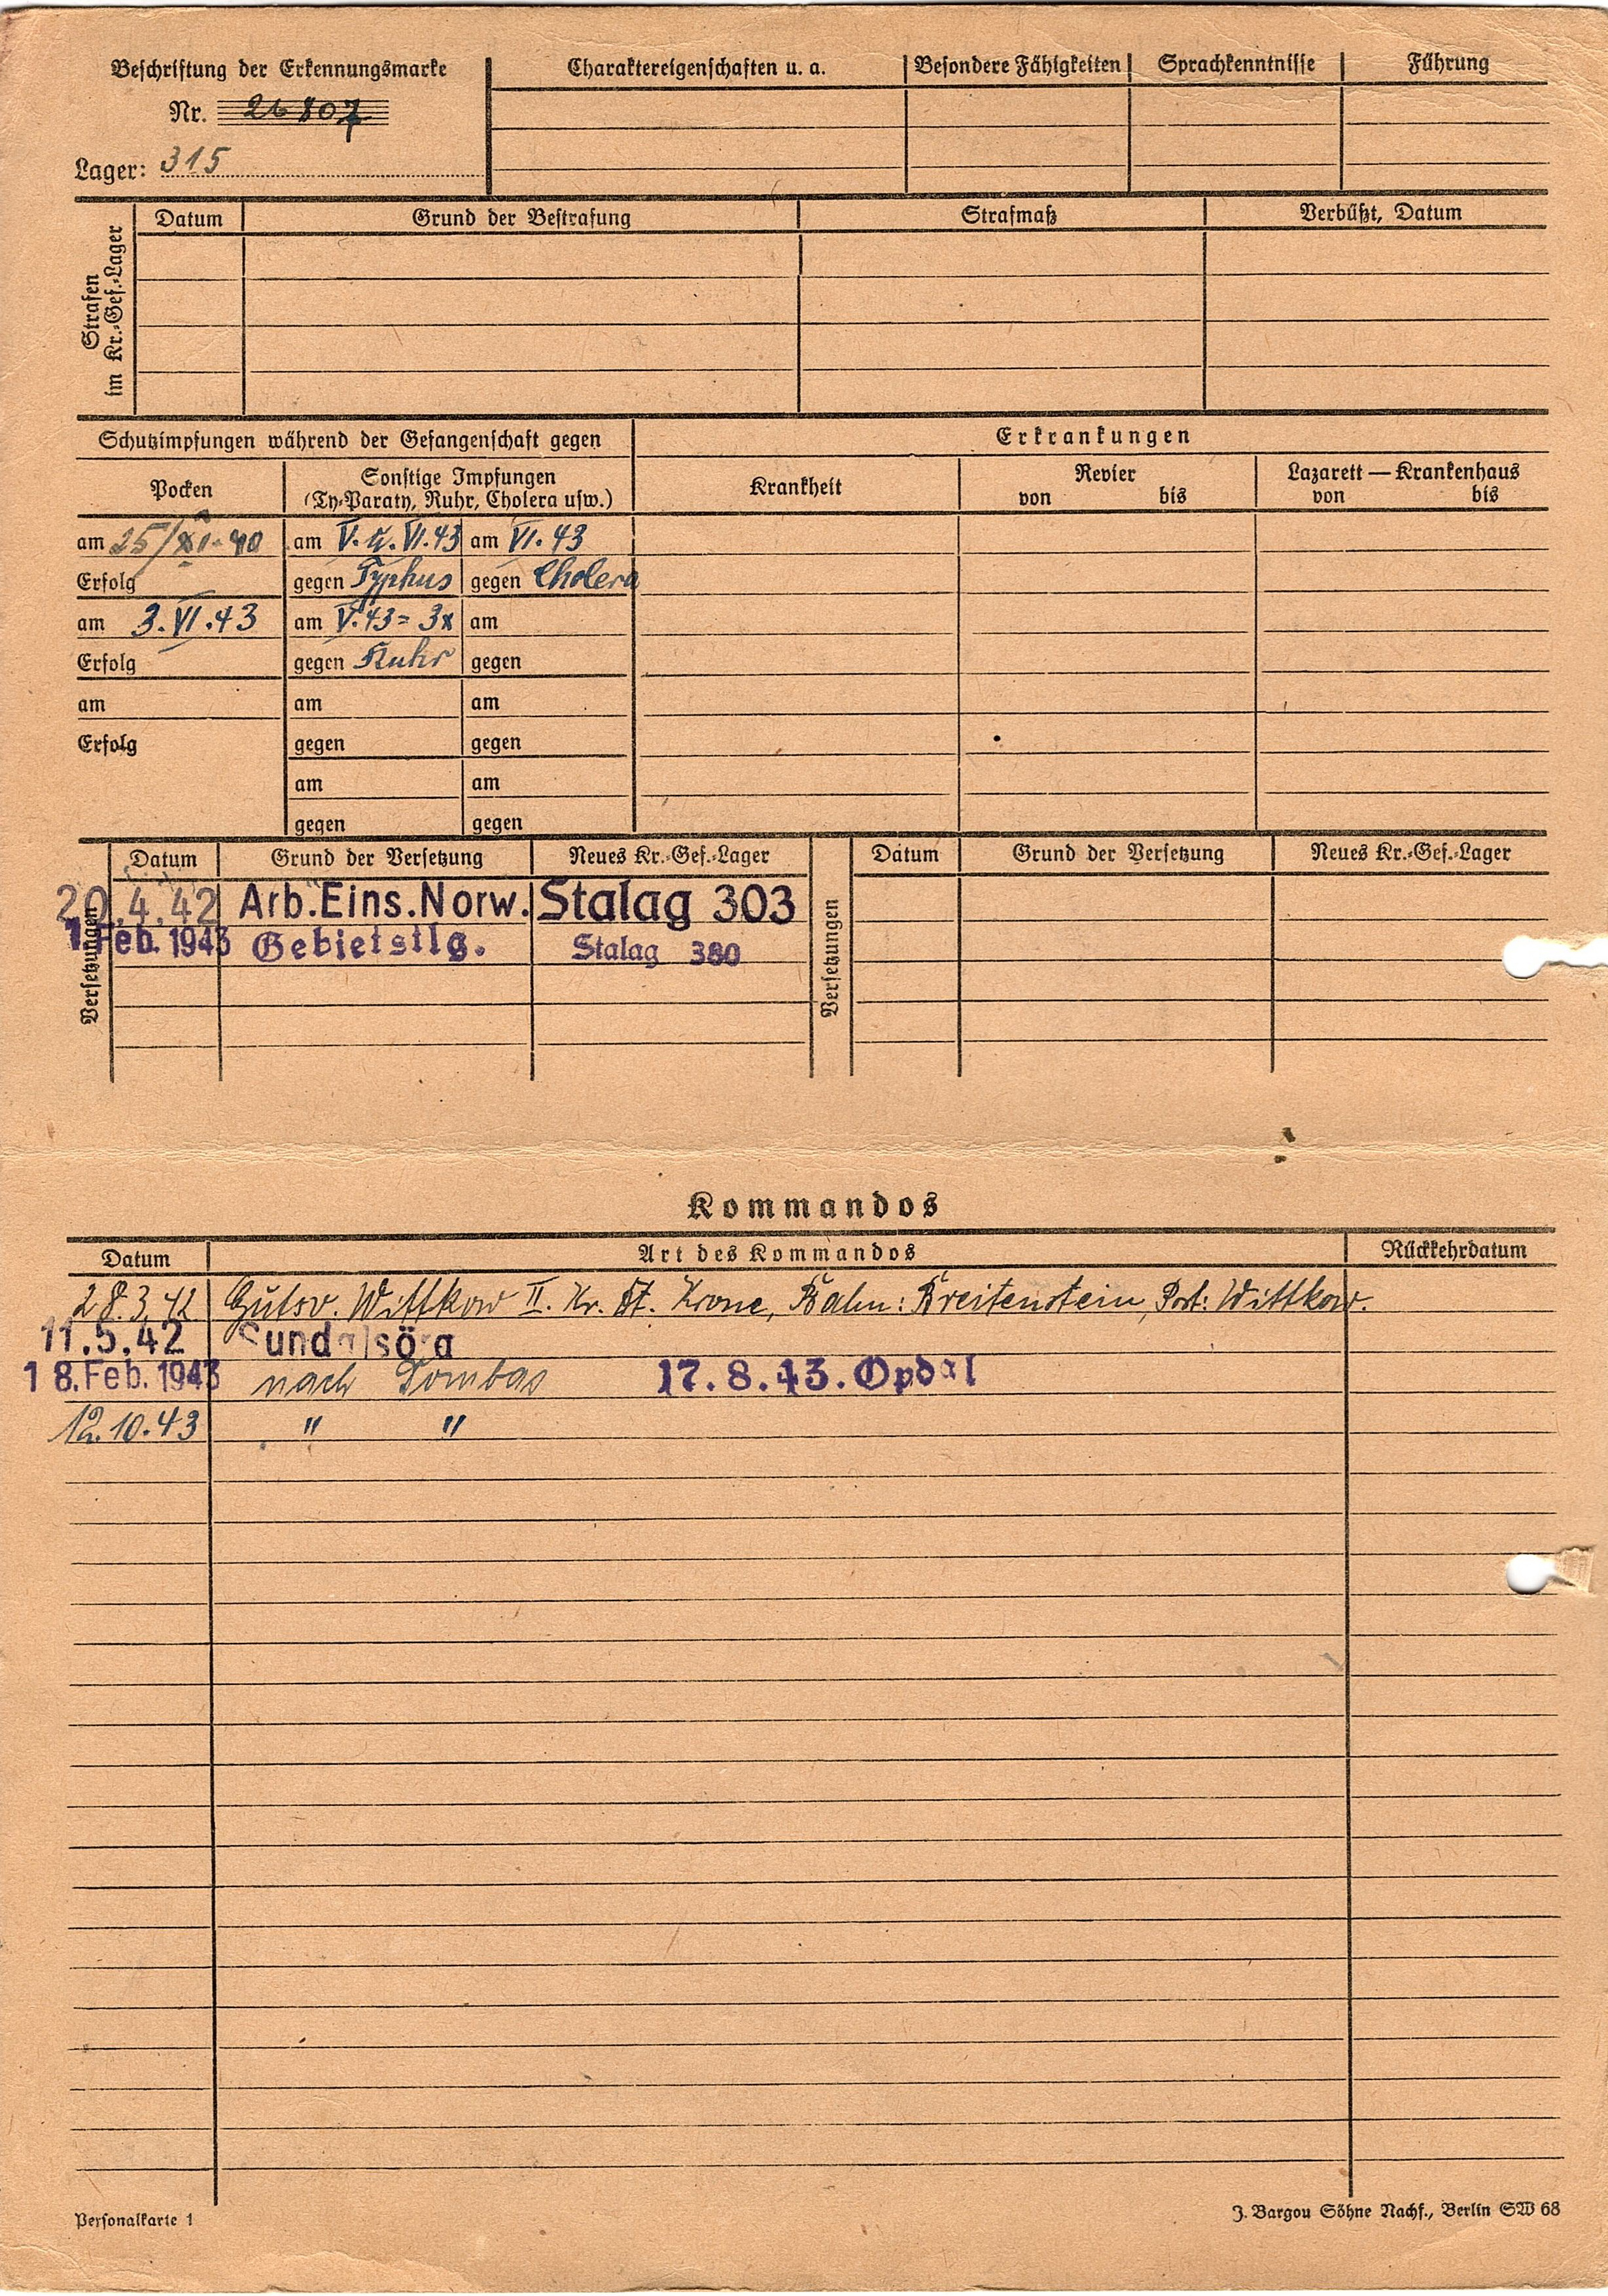 Beschriftung der Erkennungsmarke
Nr. 26807
Lager: 315
Charaktereigenschaften u. a. Besondere Fähigkeiten Sprachkenntnisse Führung
Strafen im Kr.-Gef.-Lager
Datum Grund der Bestrafung Strafmaß Verbüßt, Datum
Schutzimpfungen während der Gefangenschaft gegen
Erkrankungen
Pocken
Sonstige Impfungen
(Ty-Paraty, Ruhr, Cholera usw.)
Krankheit
Revier
von bis
Lazarett — Krankenhaus
von bis
am 25/XI.40 am V. u. VI.43 am VI.43
Erfolg gegen Typhus gegen Cholera
am 3.VI.43 am V.43=3x am
Erfolg gegen Ruhr gegen
am am am
Erfolg gegen gegen
am am
gegen gegen
Versetzungen
Datum Grund der Versetzung Neues Kr.-Gef.-Lager
20.4.42 Arb.Eins.Norw. Stalag 303
1. Feb. 1943 Gebietstlg. Stalag 380
Versetzungen
Datum Grund der Versetzung Neues Kr.-Gef.-Lager
Kommandos
Datum Art des Kommandos Rückkehrdatum
28.3.42 Gutsv. Wittkow II. Kr. Dt. Krone, Bahn: Breitenstein, Post: Wittkow.
11.5.42 Sundalsöra
18. Feb. 1943 nach Dombas 17.8.43. Opdal
12.10.43 " "
Personalkarte 1
J. Bargou Söhne Nachf., Berlin SW 68